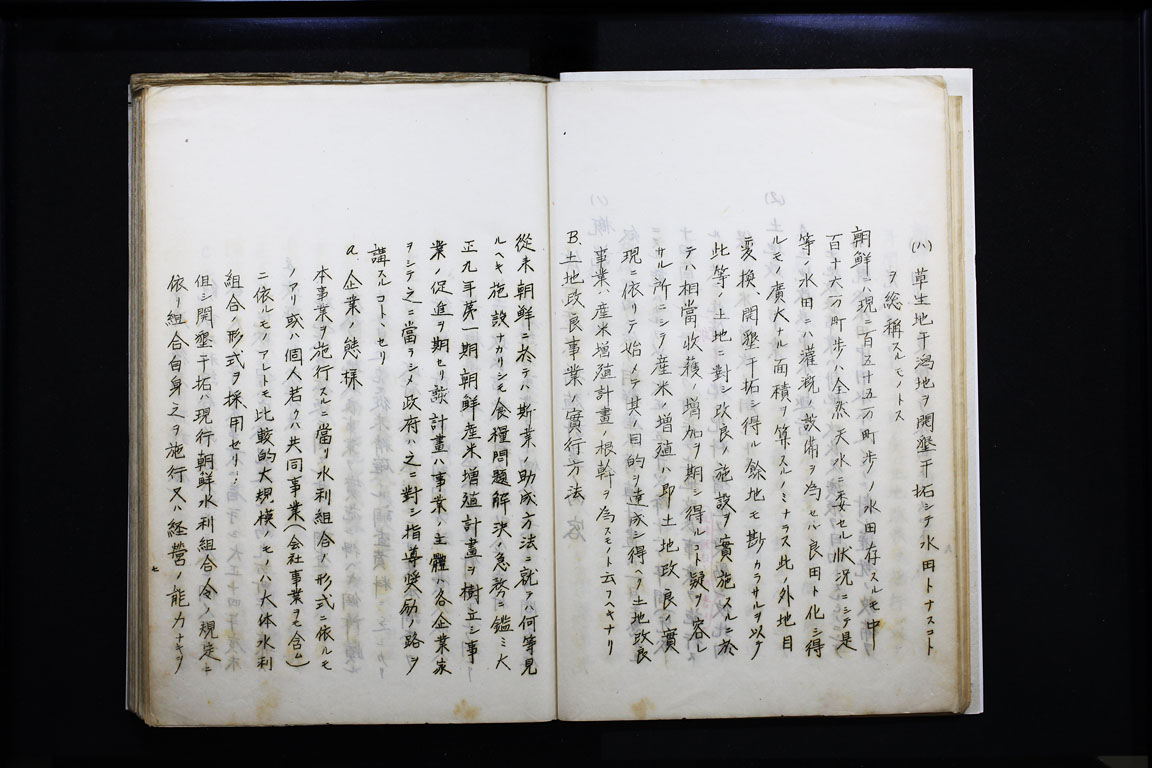 (ハ) 草生地干潟地ヲ開墾干拓シテ水田トナスコト
ヲ總稱スルモノトス
朝鮮ニハ現ニ百五十五万町歩ノ水田存スルモ中
百十六万町歩ハ全然天水ニ委セル状況ニシテ是
等ノ水田ニハ灌漑ノ設備ヲ為セバ良田ト化シ得
ルモノ廣大ナル面積ヲ算スルノミナラス此ノ外地目
変換、開墾干拓シ得ル餘地モ尠カラサルヲ以テ
此等ノ土地ニ對シ改良ノ施設ヲ實施スルニ於
テハ相當收穫ノ増加ヲ期シ得ルコト疑ヲ容レ
サル所ニシテ産米ノ増殖ハ即土地改良ノ實
現ニ依リテ始メテ其ノ目的ヲ達成シ得ヘク土地改良
事業ハ産米増殖計畫ノ根幹ヲ為スモノト云フヘキナリ
B. 土地改良事業ノ實行方法
從来朝鮮ニ於テハ斯業ノ助成方法ニ就テハ何等見
ルヘキ施設ナカリシモ食糧問題解決ノ急務ニ鑑ミ大
正九年第一期朝鮮産米増殖計畫ヲ樹立シ事
業ノ促進ヲ期セリ該計畫ハ事業ノ主體ハ各企業家
ヲシテ之ニ當ラシメ政府ハ之ニ對シ指導奬勵ノ路ヲ
講スルコトヽセリ
a. 企業ノ態様
本事業ヲ施行スルニ當リ水利組合ノ形式ニ依ルモ
ノアリ或ハ個人若クハ共同事業(会社事業ヲモ含ム)
ニ依ルモノアレトモ比較的大規模ノモノハ大体水利
組合ノ形式ヲ採用セリ
但シ開墾干拓ハ現行朝鮮水利組合令ノ規定ニ
依リ組合自身之ヲ施行又ハ経營ノ能力ナキヲ
七